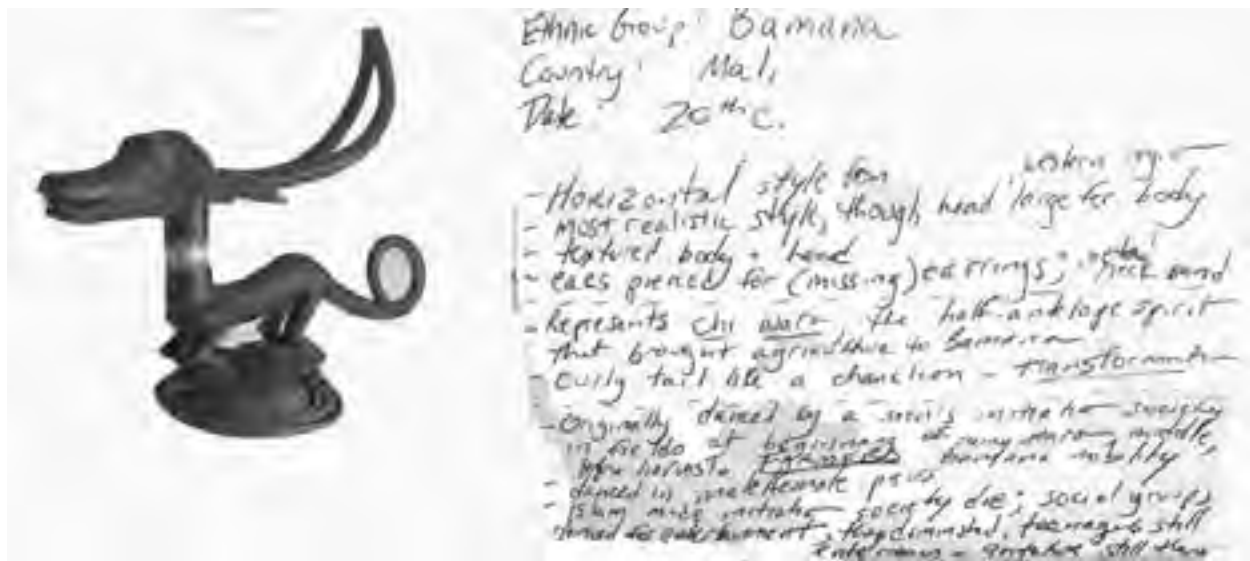 Ethnic Group: Bamana
Country: Mali
Date: 20th C.
- Horizontal style from western
- most realistic style, though head large for body
- textured body + head
- ears pierced for (missing) earrings; metal neck band
- Represents chi wara, the half-antelope spirit
that brought agriculture to Bamana
- curly tail like a chameleon - transformation
- Originally danced by a men's initiation society
in fields at beginning of rainy season, middle,
harvest. Bamana nobility
- danced in male/female pairs
- Islam made initiation society die; social groups
for entertainment, teenagers still
still there